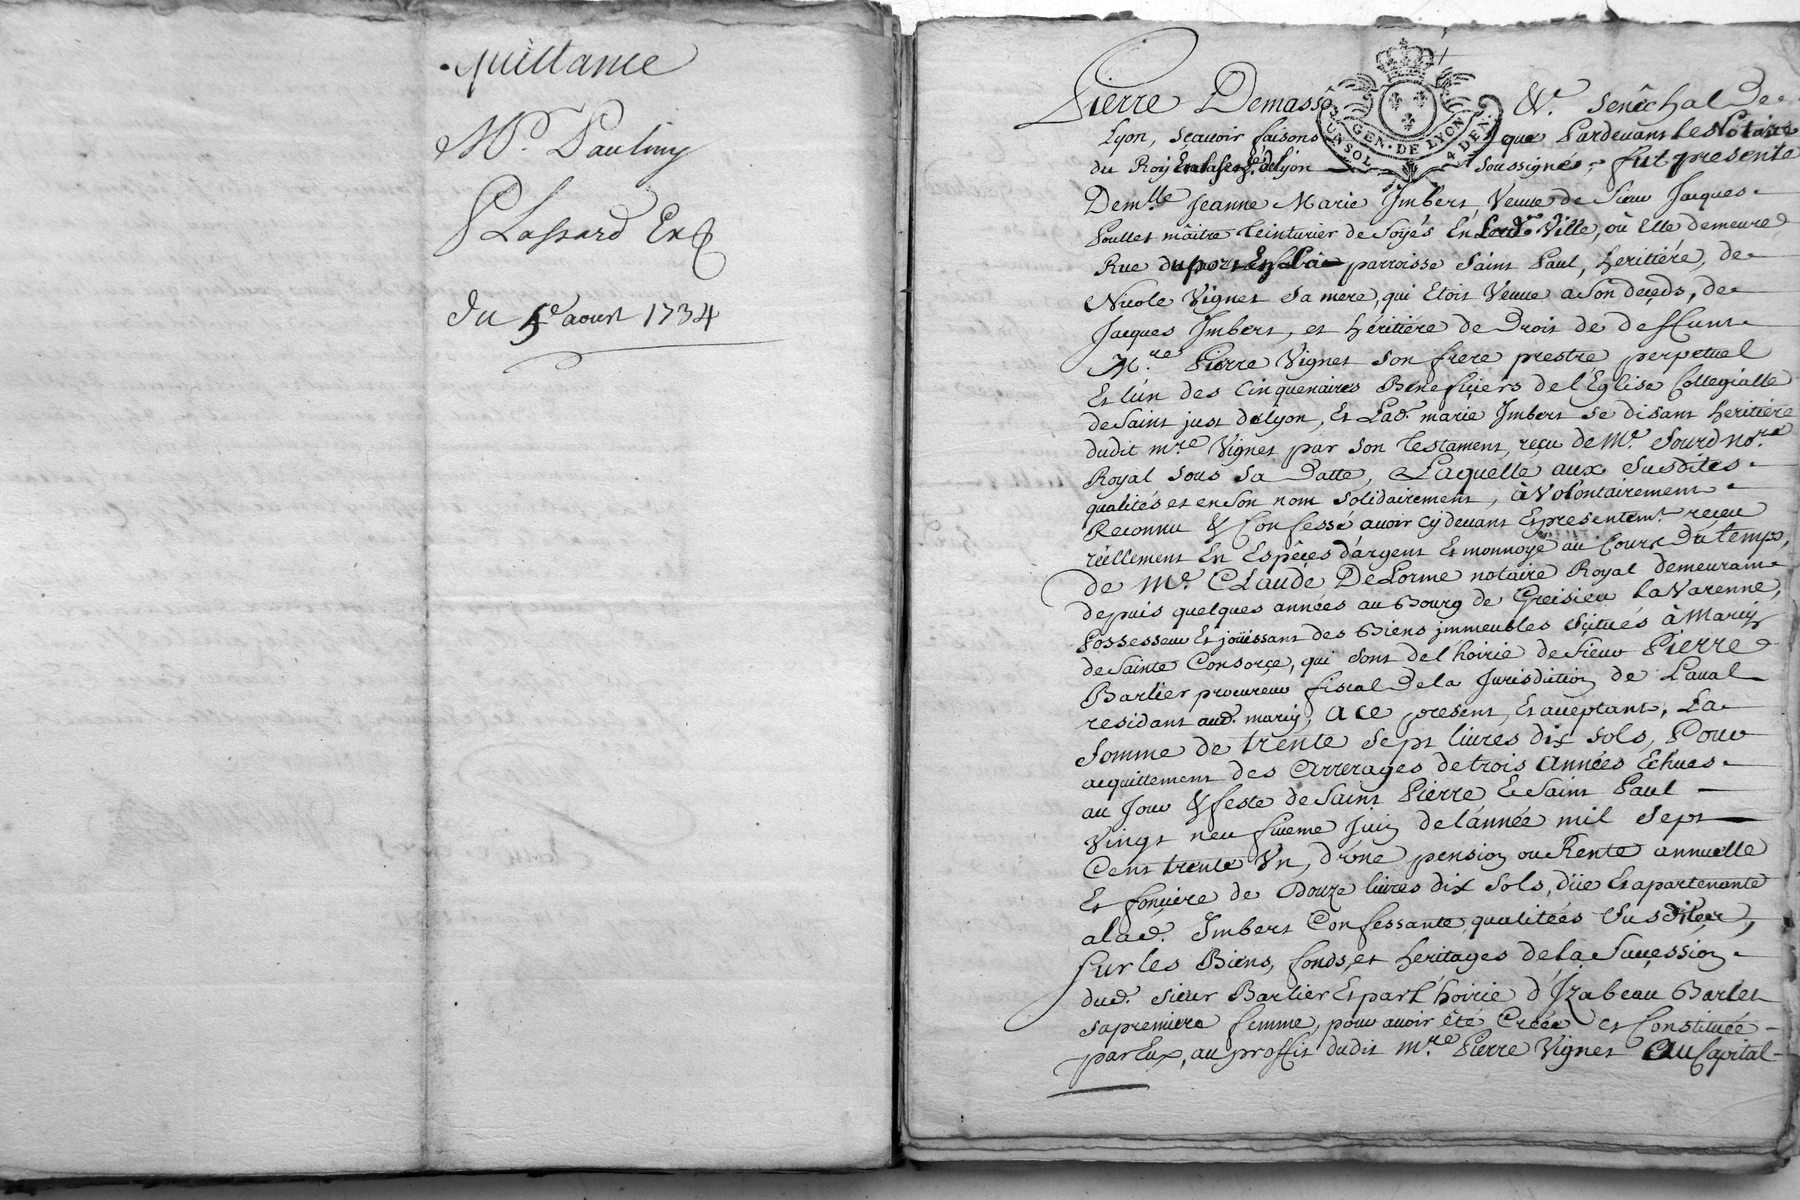 quittance
Mr. Pauliny
P Lassard Ex
du 5e aoust 1734
Pierre Demasso &c. senéchal de
Lyon, sçavoir faisons que Pardevant le Notaire
du Roy En la sen. de lyon soussigné, fut presente
Demlle Jeanne Marie Imbert, Veuve de Sieur Jacques
Poullet mâitre teinturier de Soyes En Ville, où Elle demeure
Rue du port parroisse Saint Paul, heritiére, de
Nicole Vignet Sa mere, qui Etoit Veuve a Son deçeds, de
Jacques Imbert, et héritiére de Droit de deffunt
Mre. Pierre Vignet son frere prestre perpetuel
Et l'ún des Cinquenaires Benefiçiers de l'Eglise Collegialle
de Saint just de lyon, Et Lad. marie Imbert se disant heritiére
dudit mre Vignet par son testament, reçu de Me. Sourd nore.
Royal sous sa Datte, Laquelle aux Susdites
qualités et en Son nom solidairement, à Volontairement
Reconnu & Confessé avoir cy devant Et presentemt. reçeu
réellement En Espéces d'argent Et monnoye au Cours Du temps,
de Me. CLaude DeLorme notaire Royal demeurant
depuis quelques années au Bourg de Greisieu la Varenne,
Possesseur Et joüissant des Biens jmmeubles scitués à Marcy
de Sainte Consorçe, qui sont de l'hoirie de Sieur Pierre
Barlier procureur fiscal de la Jurisdiction de Laval
residant aud. marcy, a ce present, Et acceptant, La
somme de trente sept livres dix sols, Pour
acquittement des Arrerages de trois Années Echues
au Jour & feste de Saint Pierre & Saint Paul
Vingt neufiueme Juin de l'année mil Sept
Cent trente Un, d'úne pension ou Rente annuelle
Et fonçiere de Douze livres dix sols, düe Et apartenante
a lad. Imbert Confessante, qualitées Susdites,
Sur les Biens, fonds, et heritages de la Succession
dud. sieur Barlier Et par l'hoirie d'Jzabeau Barlet
sa premiere femme, pour avoir été Créée et Constituée
par Eux, au proffit dudit mre Pierre Vignet Au Capital
GEN. DE LYON
UN SOL 4 DEN.